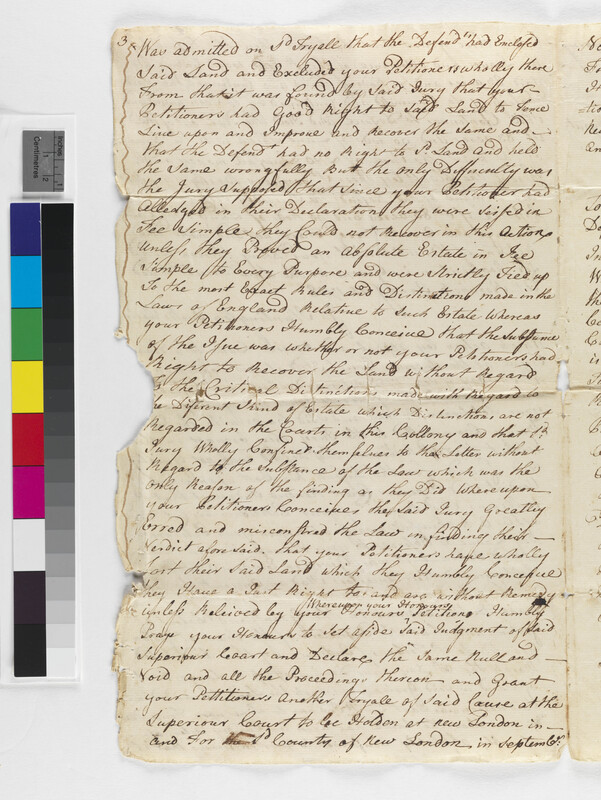 3
Was admitted on Sd Tryall that the Defendt had Enclosed
Said Land and Excluded your Petitioners wholly there
From that it was found by Said Jury that your
Petitioners had Good Right to Said Land to Fence
Live upon and Improve and Recover the Same and
that the Defendt had no Right to Sd Land and held
the Same wrongfully But the only Difficulty was
the Jury Supposed that Since your Petitioner had
Alledged in their Declaration they were Seised in
Fee Simple they Could not Recover in this Action
unless they Proved an Absolute Estate in Fee
Simple to Every Purpose and were Strictly Tied up
To the most Exact Rules and Distinctions made in the
Laws of England Relative to Such Estate whereas
your Petitioners Humbly Conceive that the Substance
of the Issue was whether or not your Petitioners had
Right to Recover the Land without Regard
to the Critical Distinctions made with Regard to
the Diferent Kind of Estate which Distinctions are not
Regarded in the Courts in this Collony and that sd
Jury Wholly Confined themselves to the Letter without
Regard to the Substance of the Law which was the
only Reason of the finding as they Did Whereupon
your Petitioners Conceives the Said Jury Greatly
Erred and misconstrued the Law in finding their
Verdict afore Said. that your Petitioners have wholly
Lost their Said Land which they Humbly Conceive
they Have a Just Right to and are without Remedy
Whereupon your Honours
unless Releived by your Honours Petitioners Humbly
Prays your Honours to Set aside Said Judgment of Said
Superiour Court and Declare the Same Null and
Void and all the Proceedings thereon and Grant
your Petitioners Another Tryale of Said Cause at the
Superiour Court to be Holden at new London in
and For the Sd County of New London in Septembr
Centimetres
Inches